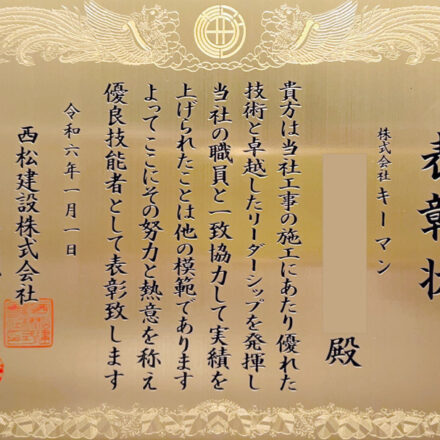 表彰状
株式会社 キーマン
殿
貴方は当社工事の施工にあたり優れた
技術と卓越したリーダーシップを発揮し
当社の職員と一致協力して実績を
上げられたことは他の模範であります
よってここにその努力と熱意を称え
優良技能者として表彰致します
令和六年一月一日
西松建設株式会社